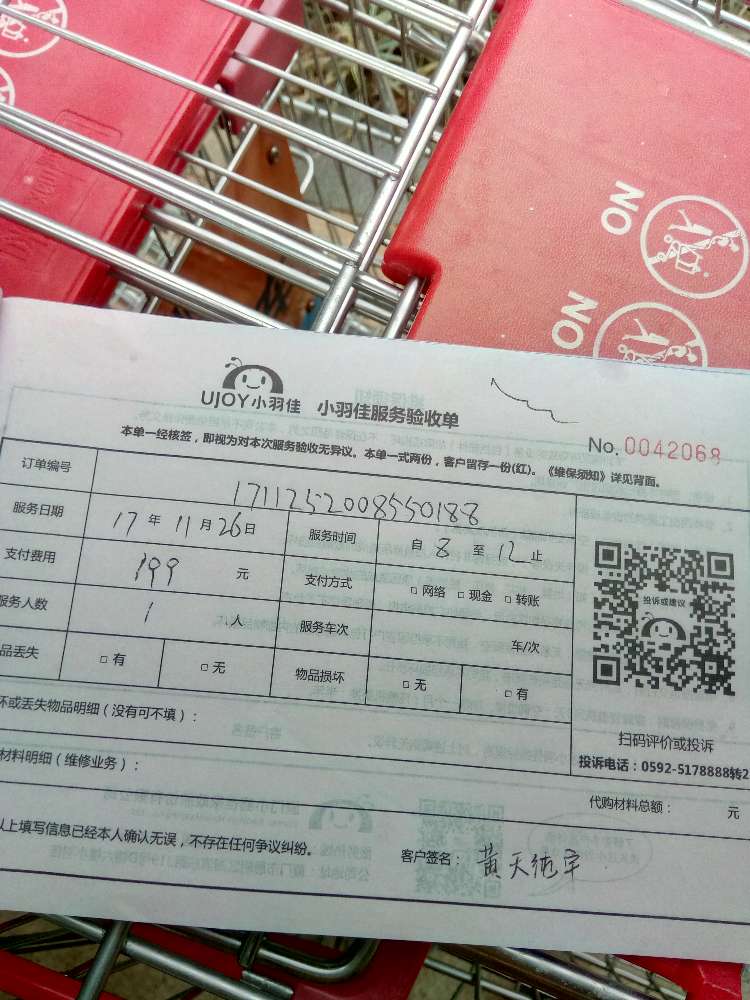 NO
NO
UJOY小羽佳 小羽佳服务验收单
No.0042068
本单一经核签，即视为对本次服务验收无异议。本单一式两份，客户留存一份(红)。《维保须知》详见背面。
订单编号 1711252008550188
服务日期 17 年 11 月 26 日 服务时间 自 8 至 12 止
支付费用 199 元 支付方式 □ 网络 □ 现金 □ 转账
服务人数 1 人 服务车次 车/次
品丢失 □ 有 □ 无 物品损坏 □ 无 □ 有
投诉或建议
扫码评价或投诉
投诉电话：0592-5178888转2
坏或丢失物品明细（没有可不填）：
材料明细（维修业务）：
代购材料总额： 元
以上填写信息已经本人确认无误，不存在任何争议纠纷。
客户签名：黄天德宇